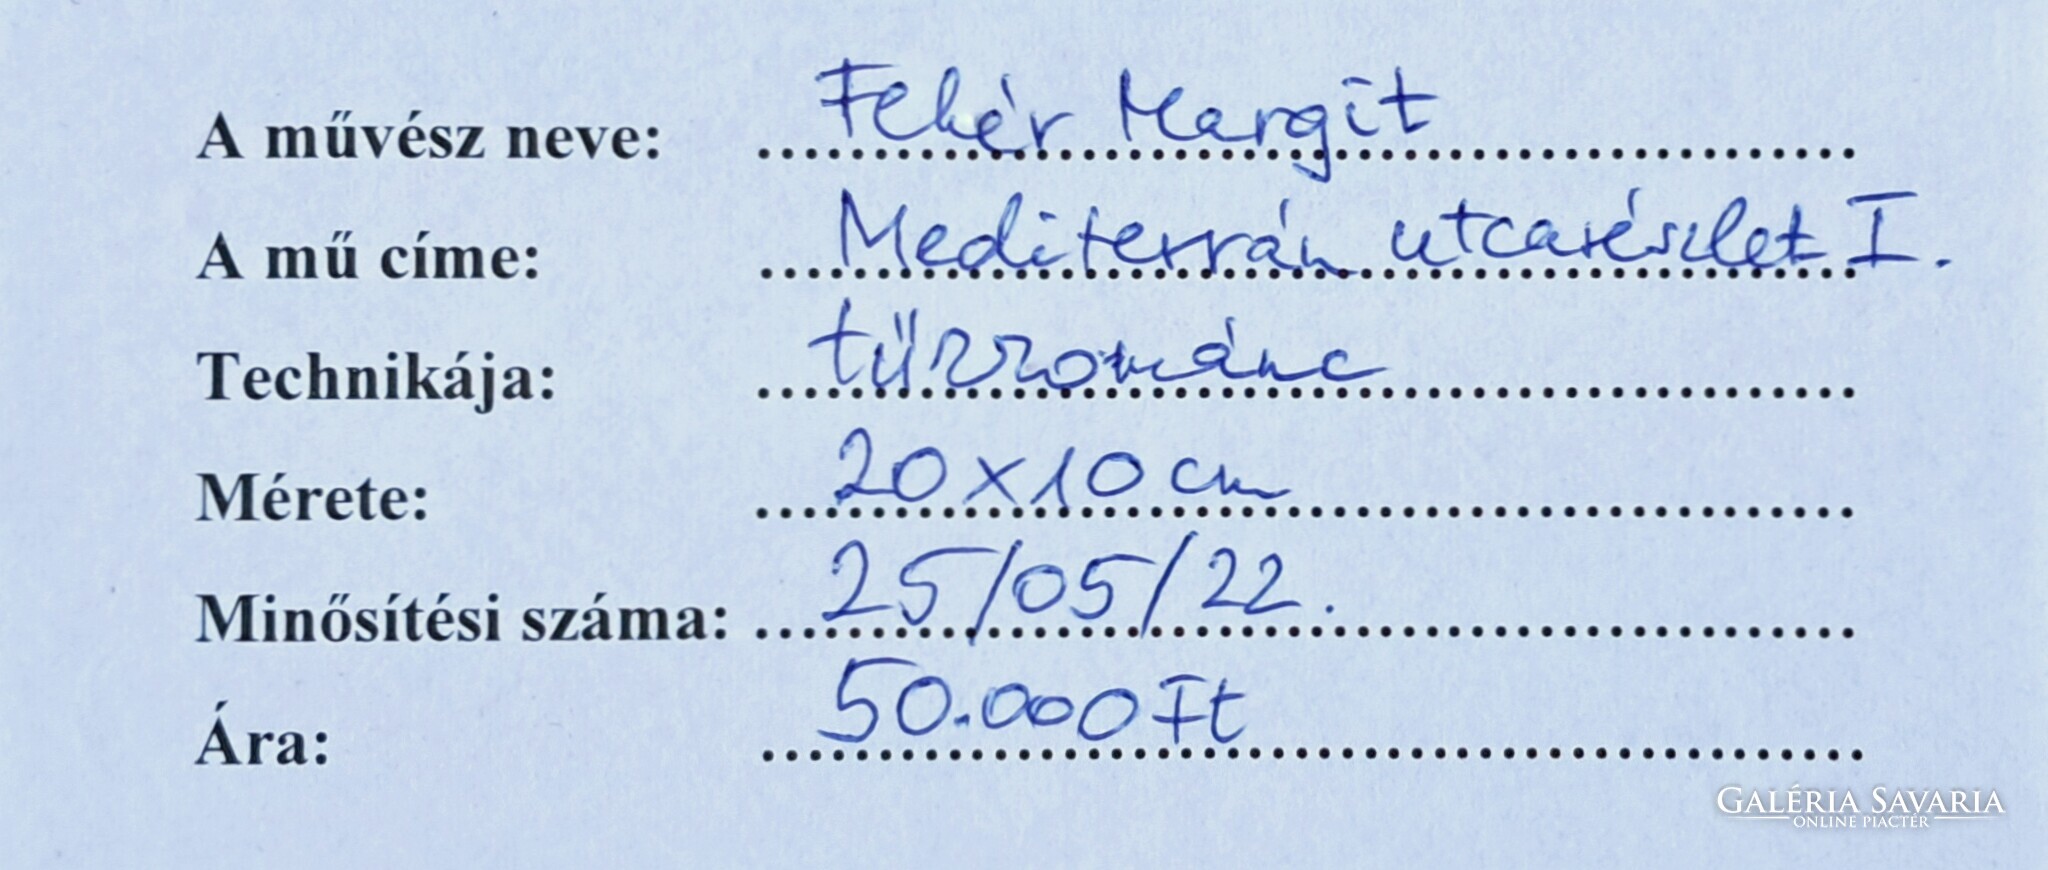 A művész neve: Fehér Margit
A mű címe: Mediterrán utcarészlet I.
Technikája: tűzrománc
Mérete: 20x10 cm
Minősítési száma: 25/05/22.
Ára: 50.000 Ft
GALÉRIA SAVARIA
ONLINE PIACTÉR